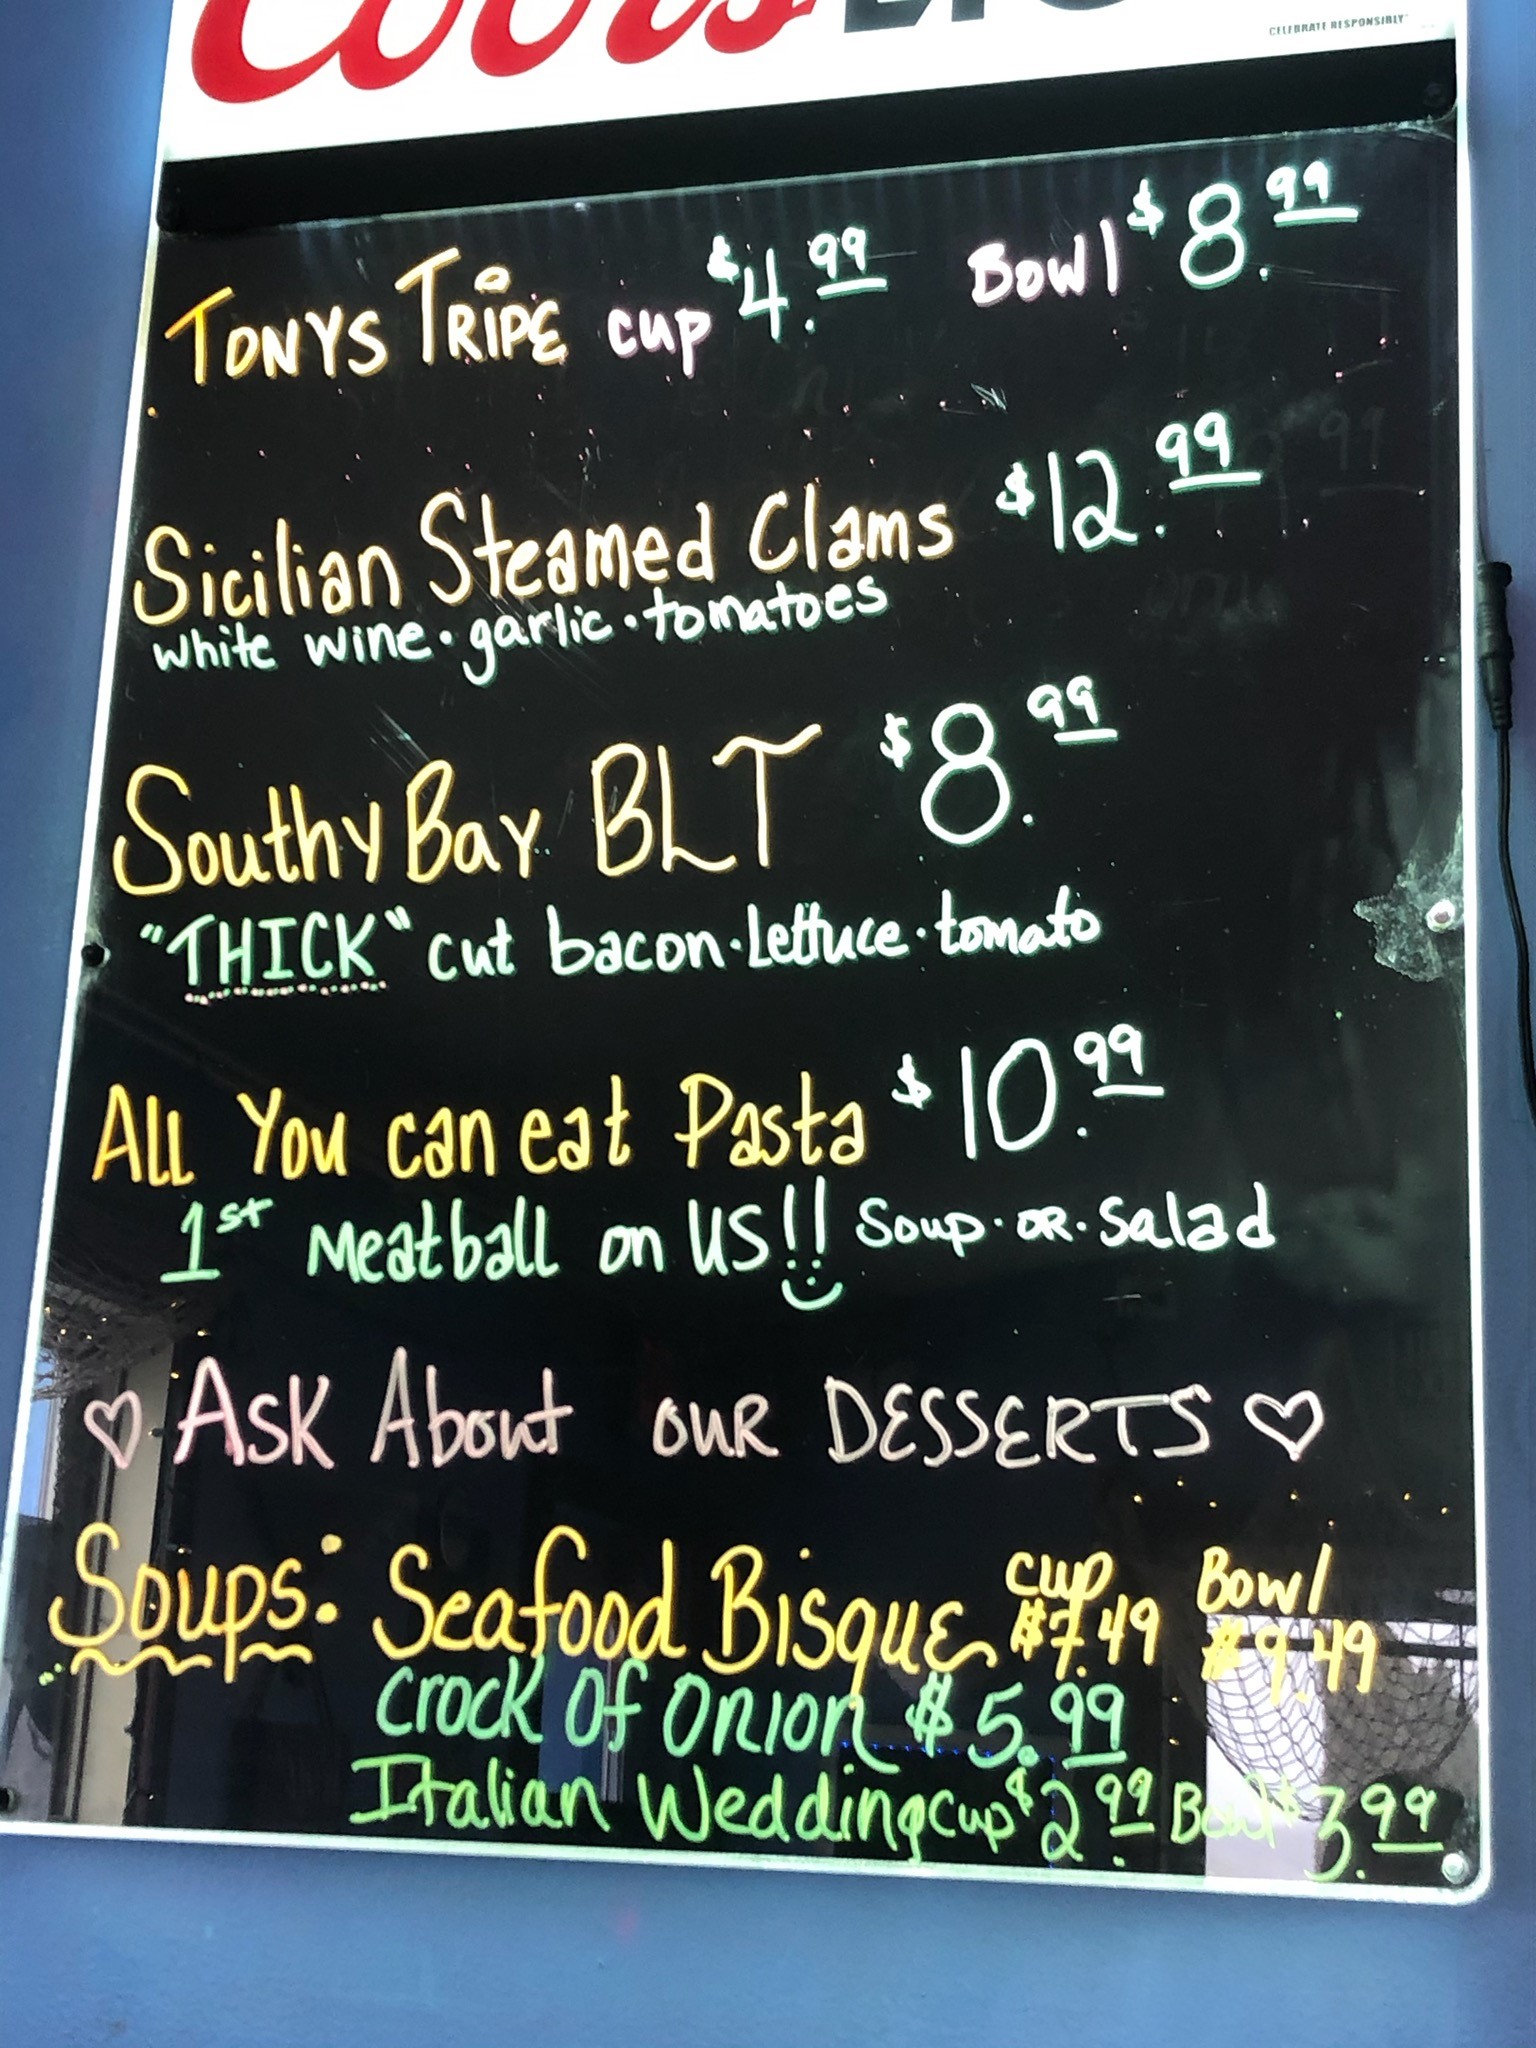 Coors
CELEBRATE RESPONSIBLY
TONYS TRIPE cup $4.99 Bowl $8.99
Sicilian Steamed Clams $12.99
white wine · garlic · tomatoes
Southy Bay BLT $8.99
"THICK" cut bacon · Lettuce · tomato
All You can eat Pasta $10.99
1st Meatball on US!! Soup · OR · Salad
♡ Ask About our DESSERTS ♡
Soups: Seafood Bisque cup $7.49 Bowl $9.49
Crock Of Onion $5.99
Italian Wedding cup $2.99 Bowl $3.99